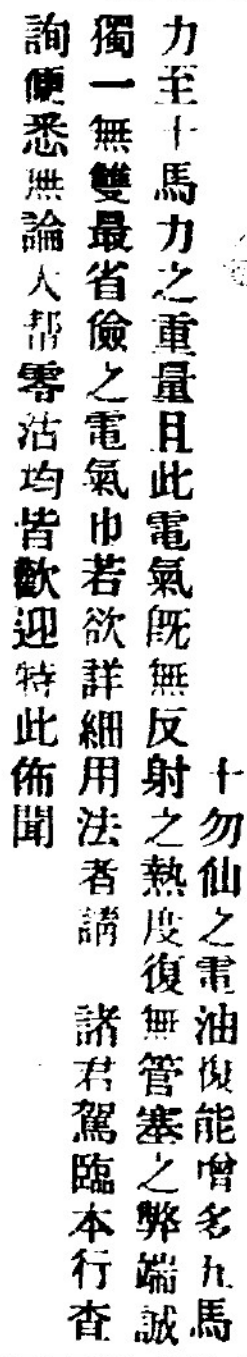 十勿仙之電油復能增多五馬
力至十馬力之重量且此電氣既無反射之熱度復無管塞之弊端誠
獨一無雙最省儉之電氣巾若欲詳細用法者請　諸君駕臨本行查
詢便悉無論大帮零沽均皆歡迎特此佈聞